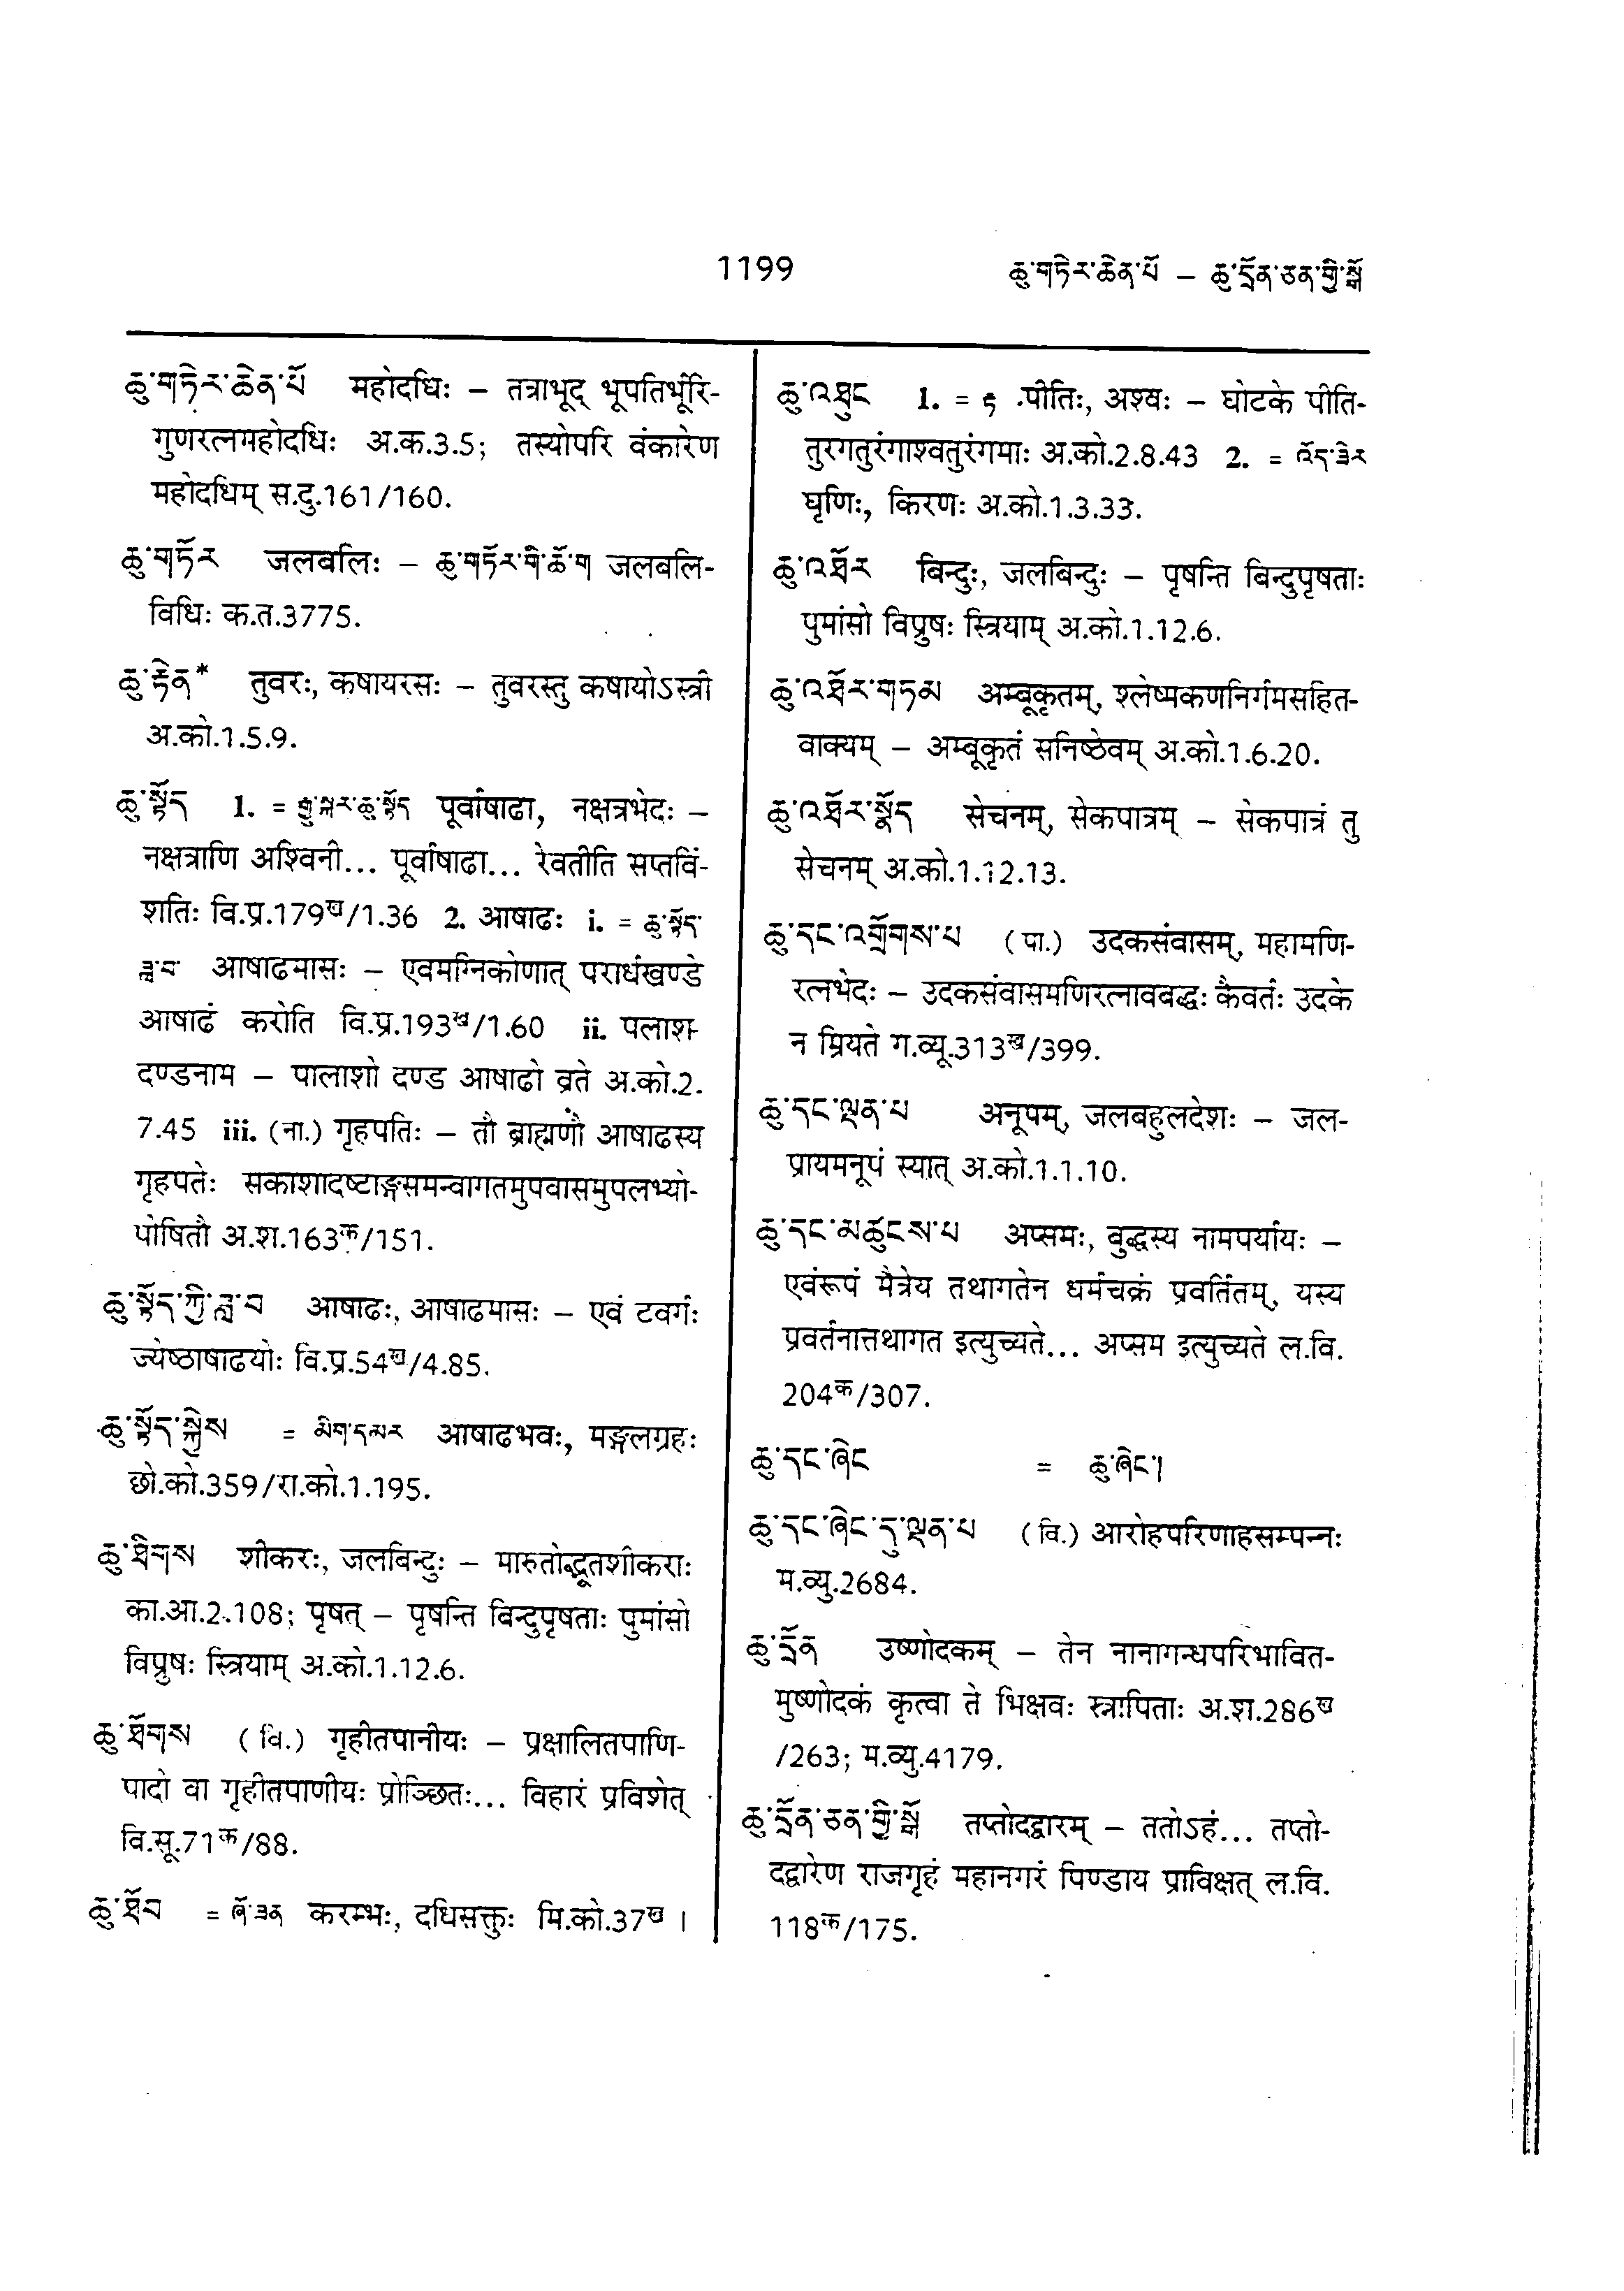 1199
ཆུ་གཏེར་ཆེན་པོ – ཆུ་དྲོན་ཅན་གྱི་སྒོ
ཆུ་གཏེར་ཆེན་པོ महोदधिः – तत्राभूद् भूपतिर्भूरि-
गुणरत्नमहोदधिः अ.क.3.5; तस्योपरि वंकारेण
महोदधिम् स.दु.161/160.
ཆུ་གཏོར जलबलिः – ཆུ་གཏོར་གི་ཆོ་ག जलबलि-
विधिः क.त.3775.
ཆུ་རྟེན* तुवरः, कषायरसः – तुवरस्तु कषायोऽस्त्री
अ.को.1.5.9.
ཆུ་སྟོད 1. = རྒྱུ་སྐར་ཆུ་སྟོད पूर्वाषाढा, नक्षत्रभेदः –
नक्षत्राणि अश्विनी... पूर्वाषाढा... रेवतीति सप्तविं-
शतिः वि.प्र.179ख/1.36 2. आषाढः i. = ཆུ་སྟོད་
ཟླ་བ आषाढमासः – एवमग्निकोणात् परार्धखण्डे
आषाढं करोति वि.प्र.193ख/1.60 ii. पलाश-
दण्डनाम – पालाशो दण्ड आषाढो व्रते अ.को.2.
7.45 iii. (ना.) गृहपतिः – तौ ब्राह्मणौ आषाढस्य
गृहपतेः सकाशादष्टाङ्गसमन्वागतमुपवासमुपलभ्यो-
पोषितौ अ.श.163क/151.
ཆུ་སྟོད་ཀྱི་ཟླ་བ आषाढः, आषाढमासः – एवं टवर्गः
ज्येष्ठाषाढयोः वि.प्र.54ख/4.85.
ཆུ་སྟོད་སྐྱེས = མིག་དམར आषाढभवः, मङ्गलग्रहः
छो.को.359/रा.को.1.195.
ཆུ་ཐིགས शीकरः, जलबिन्दुः – मारुतोद्धूतशीकराः
का.आ.2.108; पृषत् – पृषन्ति विन्दुपृषताः पुमांसो
विप्रुषः स्त्रियाम् अ.को.1.12.6.
ཆུ་ཐོགས (वि.) गृहीतपानीयः – प्रक्षालितपाणि-
पादो वा गृहीतपाणीयः प्रोञ्छितः... विहारं प्रविशेत्
वि.सू.71क/88.
ཆུ་ཐོབ = ཞོ་ཟན करम्भः, दधिसक्तुः मि.को.37ख ।
ཆུ་འཐུང 1. = རྟ पीतिः, अश्वः – घोटके पीति-
तुरगतुरंगाश्वतुरंगमाः अ.को.2.8.43 2. = འོད་ཟེར
घृणिः, किरणः अ.को.1.3.33.
ཆུ་འཐོར बिन्दुः, जलबिन्दुः – पृषन्ति बिन्दुपृषताः
पुमांसो विप्रुषः स्त्रियाम् अ.को.1.12.6.
ཆུ་འཐོར་གཏམ अम्बूकृतम्, श्लेष्मकणनिर्गमसहित-
वाक्यम् – अम्बूकृतं सनिष्ठेवम् अ.को.1.6.20.
ཆུ་འཐོར་སྣོད सेचनम्, सेकपात्रम् – सेकपात्रं तु
सेचनम् अ.को.1.12.13.
ཆུ་དང་འགྲོགས་པ (पा.) उदकसंवासम्, महामणि-
रत्नभेदः – उदकसंवासमणिरत्नावबद्धः कैवर्तः उदके
न म्रियते ग.व्यू.313ख/399.
ཆུ་དང་ལྡན་པ अनूपम्, जलबहुलदेशः – जल-
प्रायमनूपं स्यात् अ.को.1.1.10.
ཆུ་དང་མཚུངས་པ अप्समः, वुद्धस्य नामपर्यायः –
एवंरूपं मैत्रेय तथागतेन धर्मचक्रं प्रवर्तितम्, यस्य
प्रवर्तनात्तथागत इत्युच्यते... अप्सम इत्युच्यते ल.वि.
204क/307.
ཆུ་དང་ཞེང = ཆུ་ཞེང།
ཆུ་དང་ཞེང་དུ་ལྡན་པ (वि.) आरोहपरिणाहसम्पन्नः
म.व्यु.2684.
ཆུ་དྲོན उष्णोदकम् – तेन नानागन्धपरिभावित-
मुष्णोदकं कृत्वा ते भिक्षवः स्नापिताः अ.श.286ख
/263; म.व्यु.4179.
ཆུ་དྲོན་ཅན་གྱི་སྒོ तप्तोदद्वारम् – ततोऽहं... तप्तो-
दद्वारेण राजगृहं महानगरं पिण्डाय प्राविक्षत् ल.वि.
118क/175.